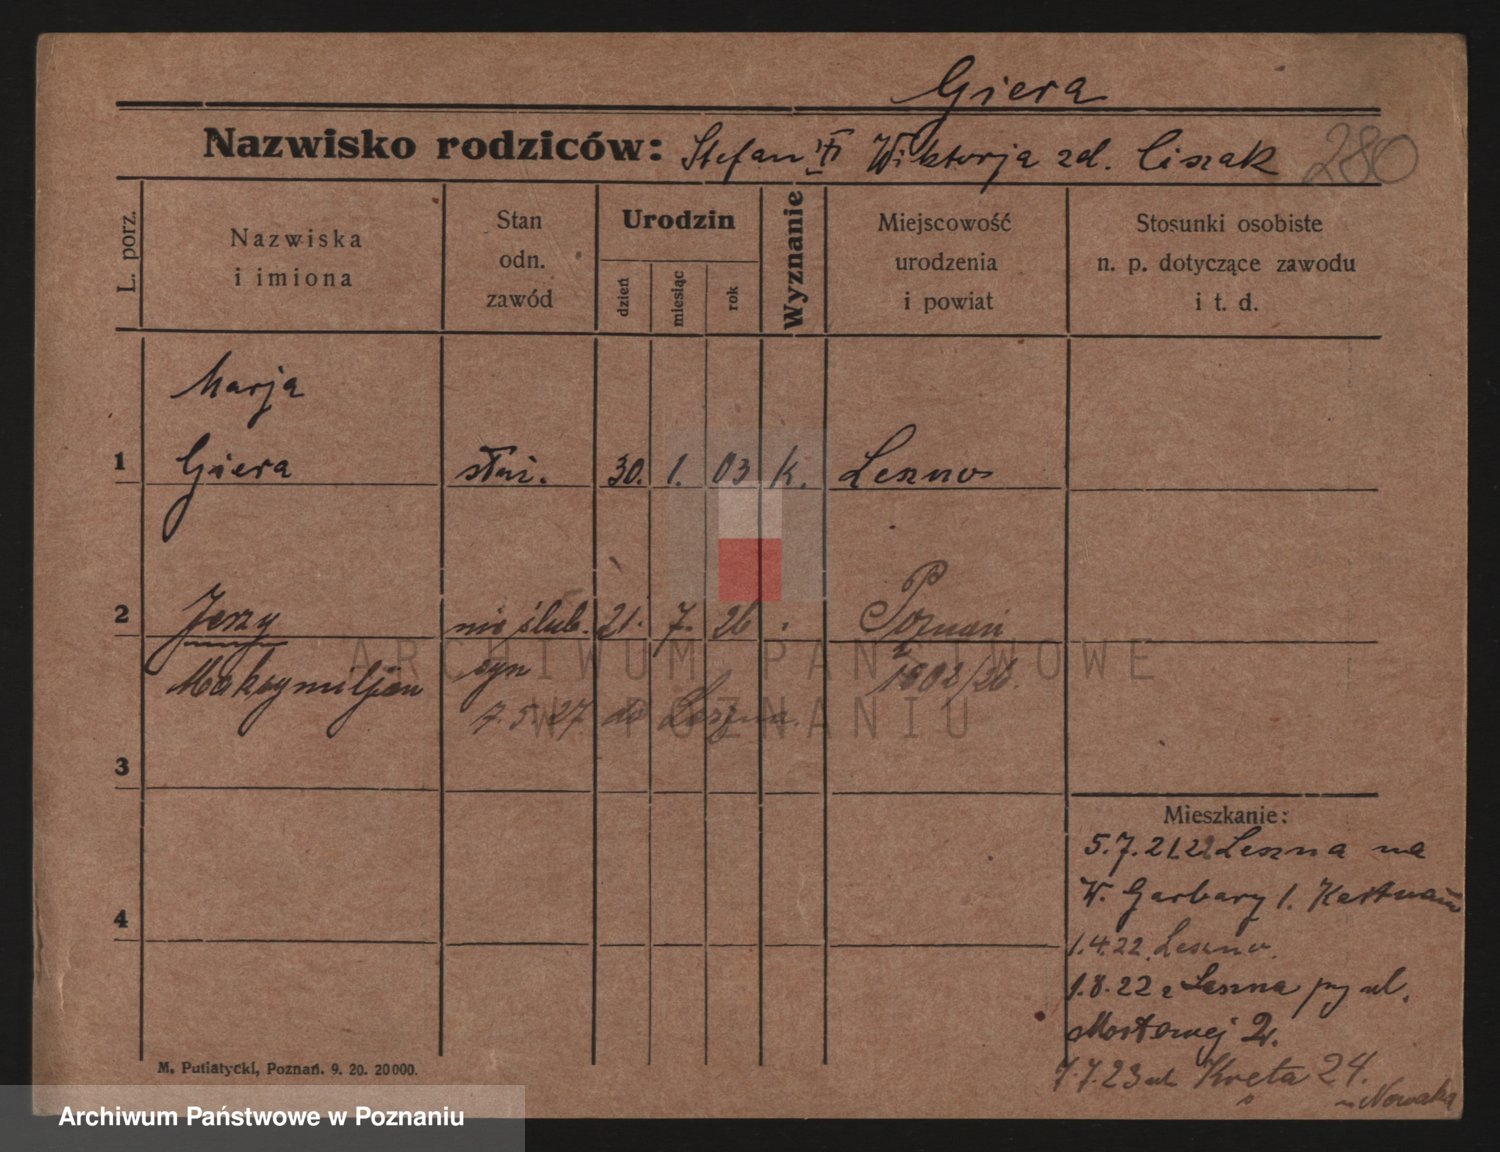 Giera
Nazwisko rodziców: Stefan Wiktorja zd. Ciszak 280
L. porz.
Nazwiska
i imiona
Stan
odn.
zawód
Urodzin
dzień
miesiąc
rok
Wyznanie
Miejscowość
urodzenia
i powiat
Stosunki osobiste
n. p. dotyczące zawodu
i t. d.
Marja
1 Giera służ. 30. 1. 03 k. Leszno
2 Jerzy nie ślub. 21. 7. 26 Poznań
Maksymiljan syn 1502/26.
7.5.27 do Leszna.
3
4
Mieszkanie:
5.7.21 z Leszna na
W. Garbary 1.
1.4.22. Leszno.
1.8.22 z Leszna przy ul.
Mostowej 2.
7.7.23 ul. Kręta 24.
Nowaka
M. Putiatycki, Poznań. 9. 20. 20000.
ARCHIWUM PAŃSTWOWE
W POZNANIU
Archiwum Państwowe w Poznaniu